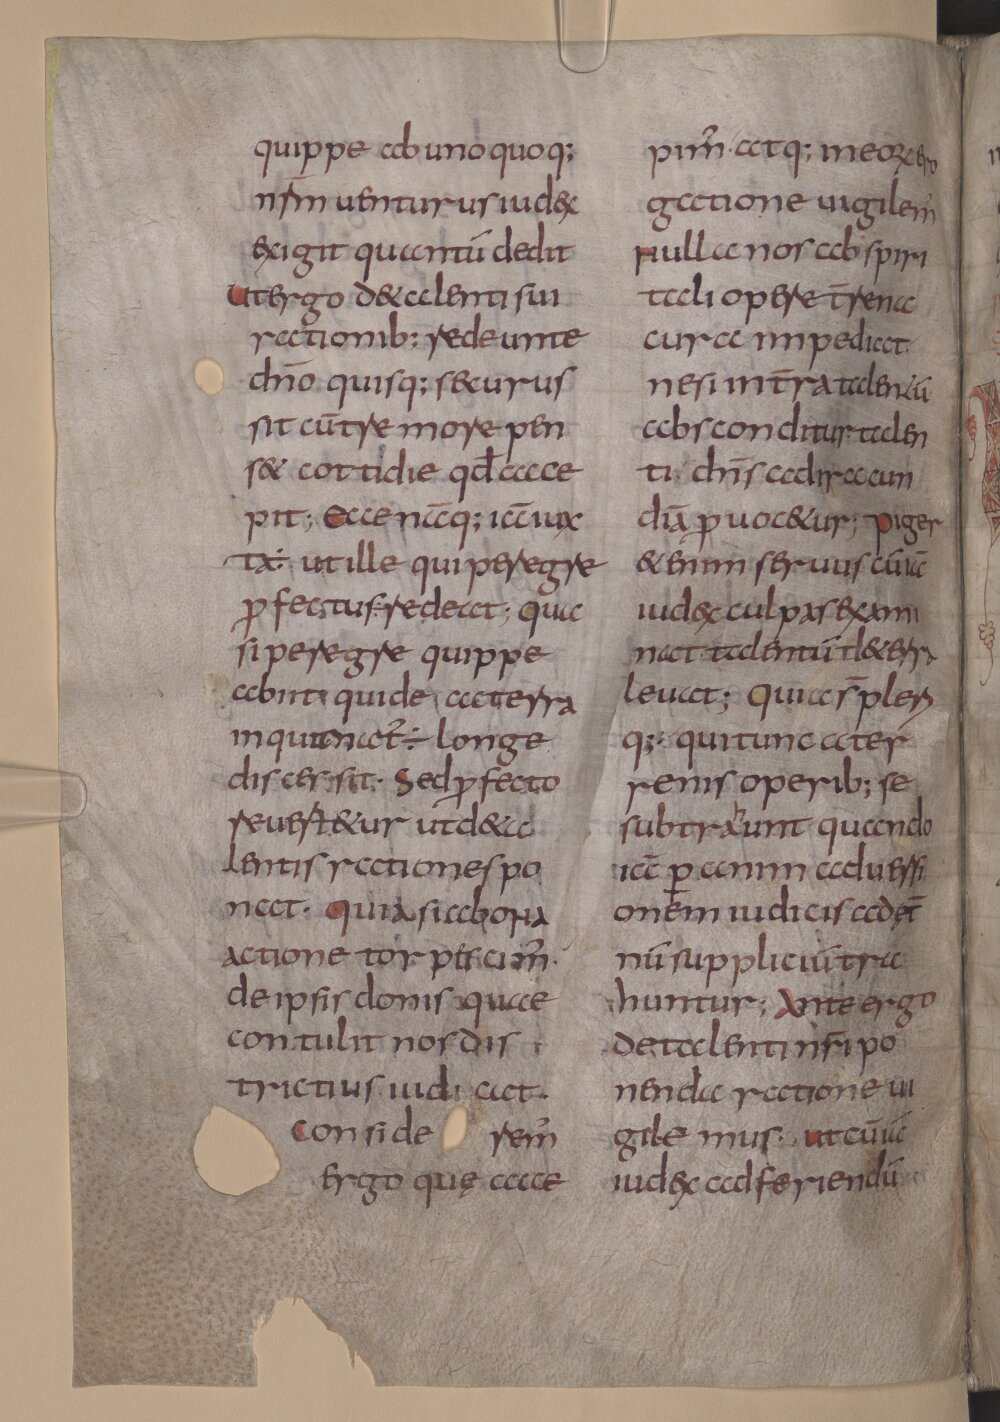 quippe ab uno quoq;
nr̄m uenturus iudex
exigit quantū dedit
Ut ergo de talenti sui
rationib; redeunte
dn̄o quisq; securus
sit cū tremore pen
s& cottidie qđ acce
pit; Ecce nāq; iā iux
ta: ut ille qui peregre
ꝓfectus: redeat; Qua
si peregre quippe
abiit qui de hac terra
in qua nat᷒:÷ longe
discessit. Sed ꝓfecto
reuert&ur ut de ta
lentis rationes po
nat. Quia si a bona
actione torpescim᷒.
de ipsis donis quae
contulit nos dis
trictius iudicat.
Considerem᷒
ergo quę acce
pim᷒. atq; in eoꝝ ero
gatione uigilem᷒
Nulla nos ab spiri
tali opere t̄rena
cura inpediat.
ne si in t̄ra talentū
absconditur talen
ti dn̄s ad iracun
diā ꝓuoc&ur; Piger
&enim seruus cū iā
iudex culpas exami
nat talentū d& erra
leuat; Quia s̄ pleri
q;. qui tunc a ter
renis operib; se
subtrahunt quando
iā ꝑ animaduersi
onem iudicis ad ęt̄
nū suppliciū tra
huntur; Ante ergo
de talenti nr̄i po
nenda ratione ui
gilemus. ut cū iā
iudex ad feriendū